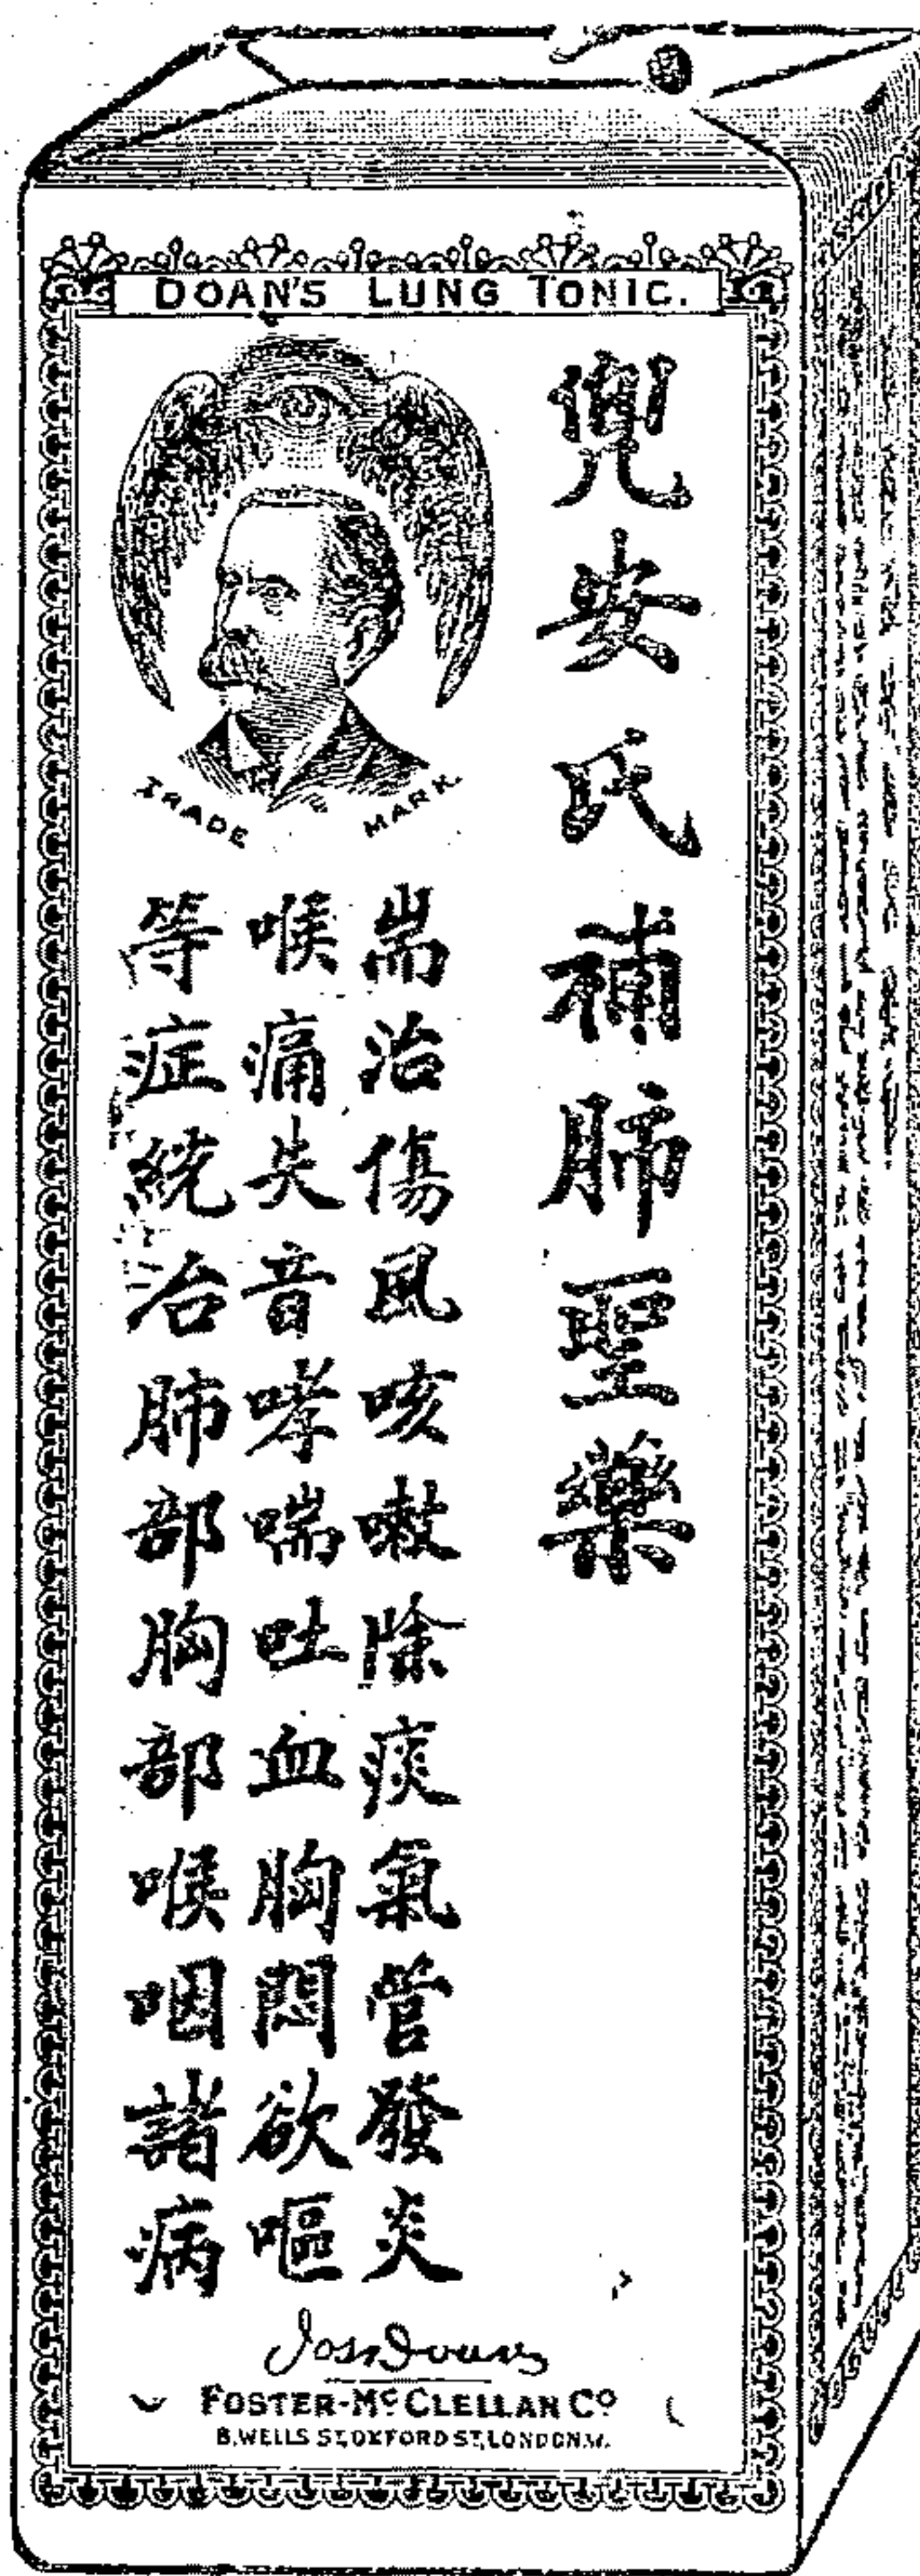 DOAN'S LUNG TONIC.
兜安氏補肺聖藥
TRADE MARK
耑治傷風咳嗽除痰氣管發炎
喉痛失音哮喘吐血胸悶欲嘔
等症統治肺部胸部喉咽諸病
Jas Doan
FOSTER-McCLELLAN Co
8, WELLS ST, OXFORD ST, LONDON.W.